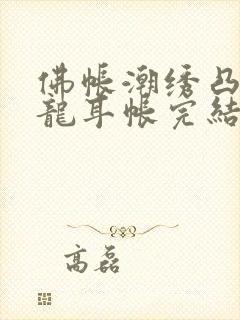 佛帳潮绣凸
龍耳帳完結
高磊